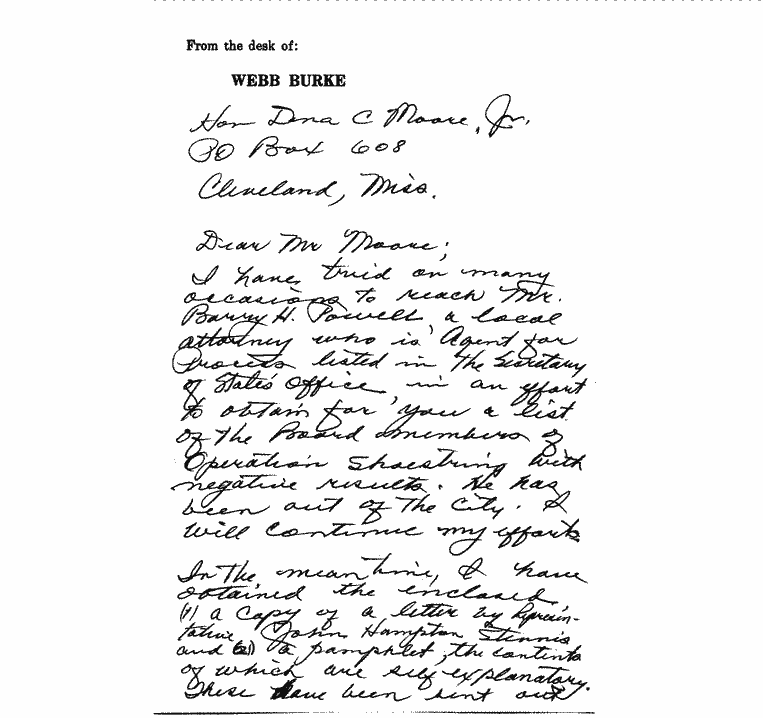 From the desk of:
WEBB BURKE
Hon Dana C Moore, Jr.
PO Box 608
Cleveland, Miss.
Dear Mr Moore;
I have tried on many
occasions to reach Mr.
Barry H. Powell a local
attorney who is Agent for
Process listed in the Secretary
of State's Office, in an effort
to obtain for you a list
of the Board members of
Operation Shoestring with
negative results. He has
been out of the City. I
will continue my efforts
In the meantime, I have
obtained the enclosed
(1) a copy of a letter by Represen-
tative John Hampton Stennis
and (2) a pamphlet, the contents
of which are self explanatory.
These have been sent out